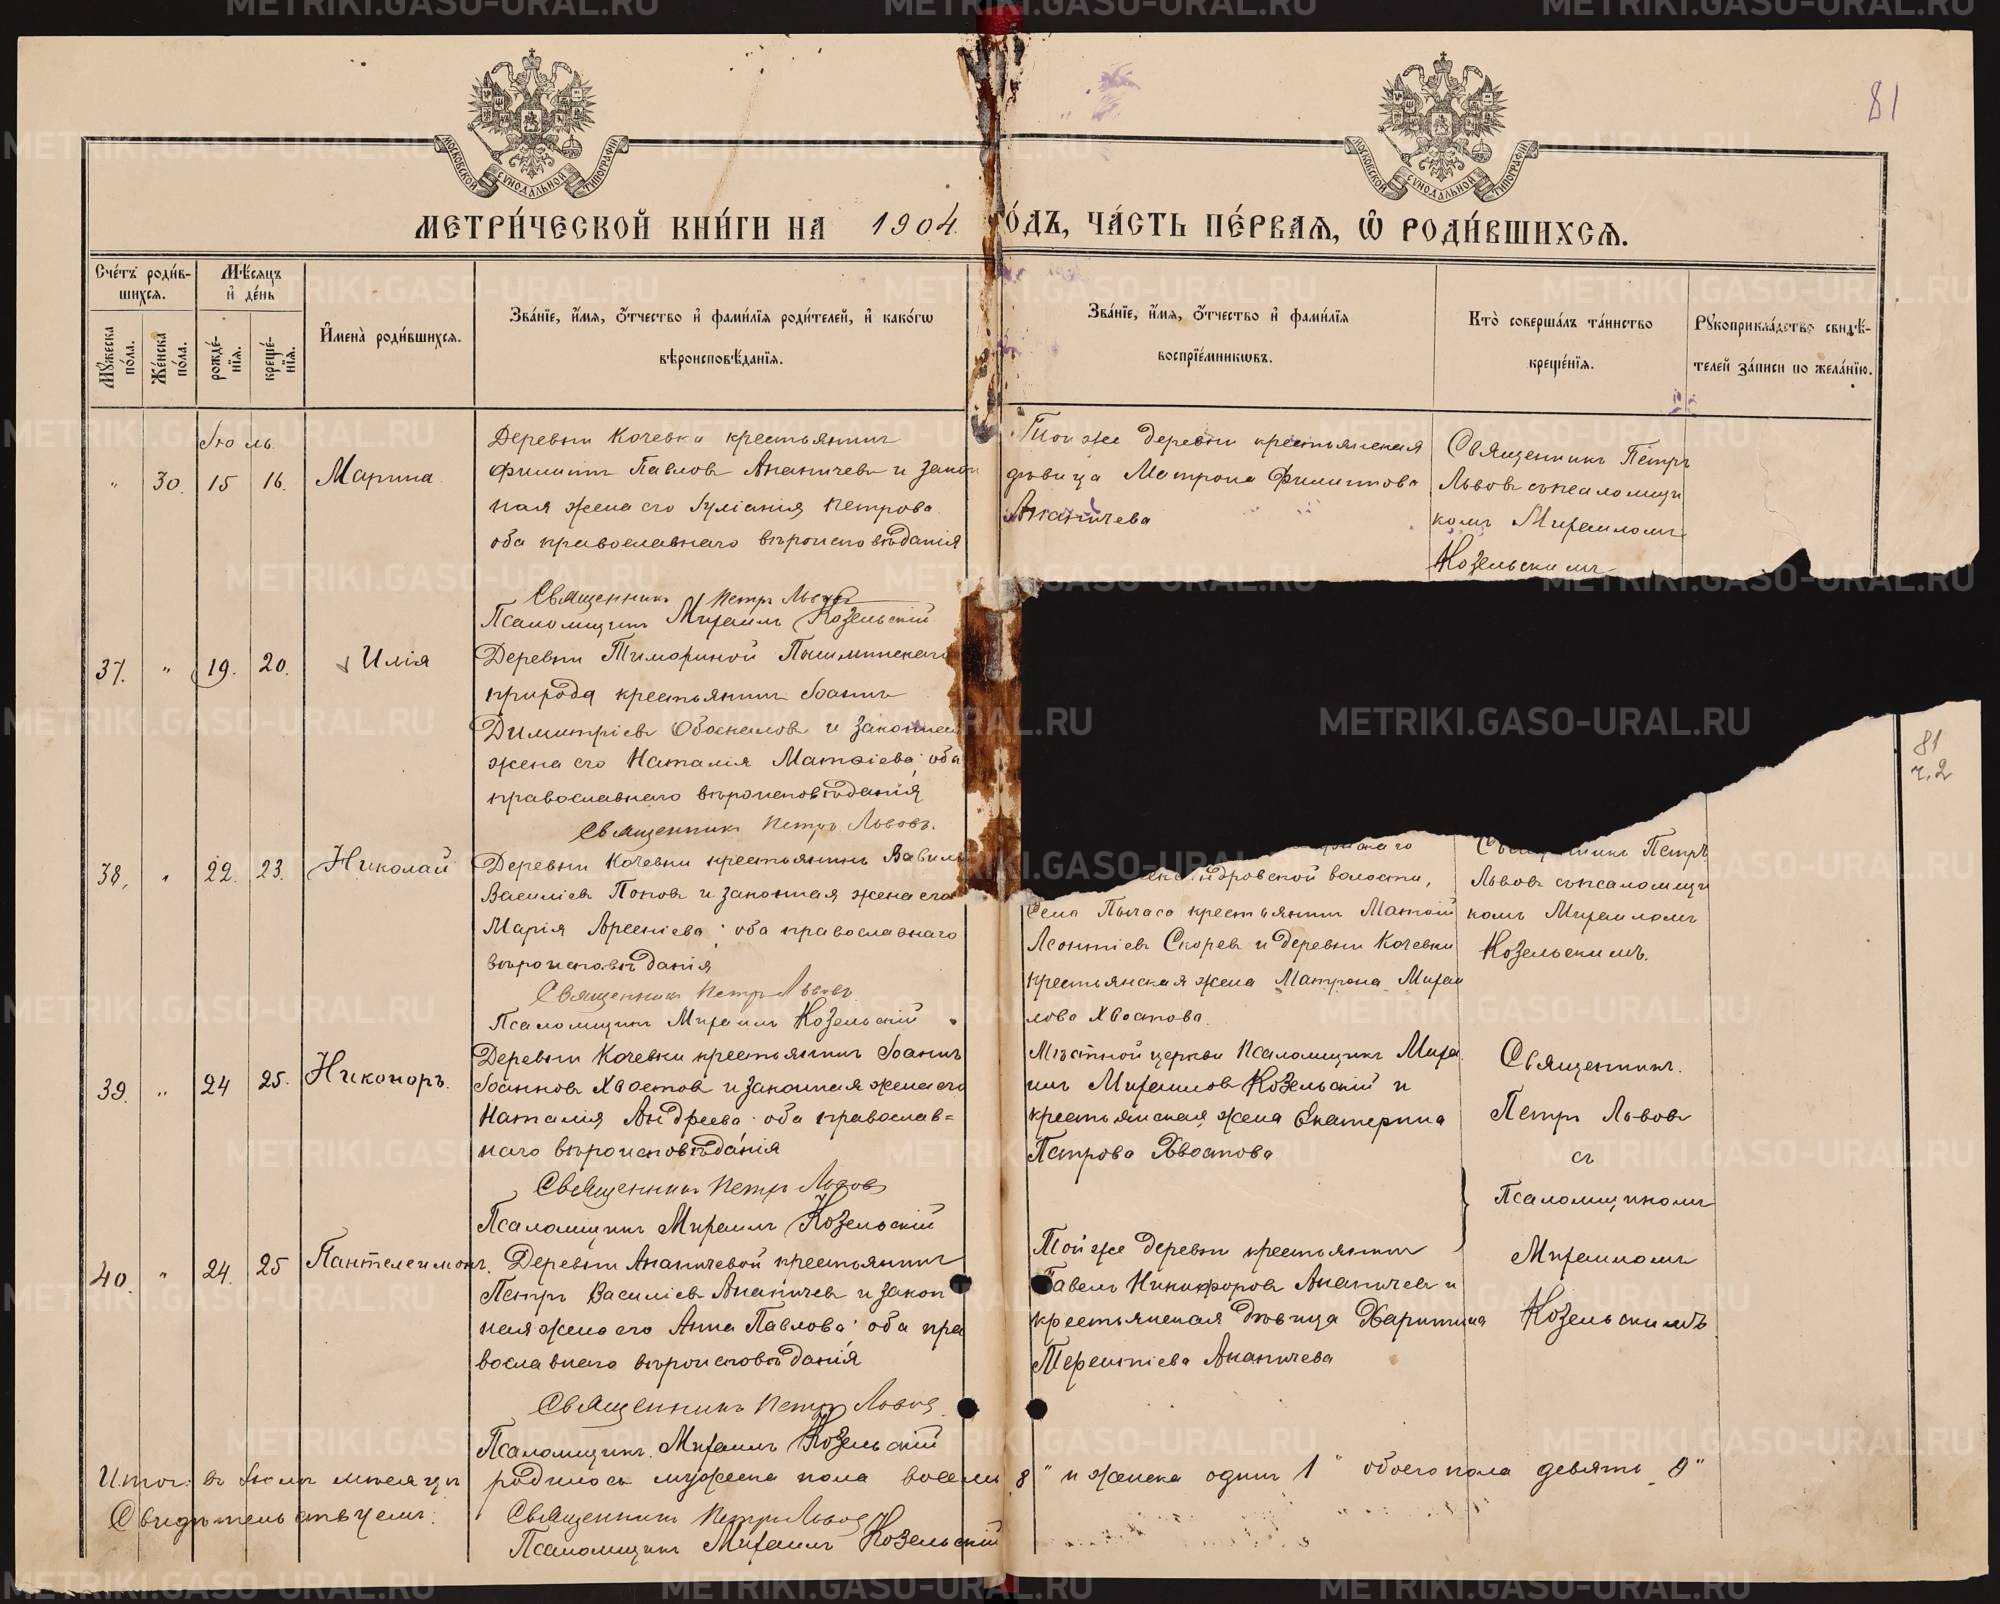 81
МОСКОВСКОЙ СѴНОДАЛЬНОЙ ТИПОГРАФІИ
МОСКОВСКОЙ СѴНОДАЛЬНОЙ ТИПОГРАФІИ
МЕТРИ́ЧЕСКОЙ КНИ́ГИ НА 1904. ГО́ДЪ, ЧА́СТЬ ПЕ́РВАЯ, Ѡ҆ РОДИ́ВШИХСЯ.
Сче́тъ роди́в-
шихся.
Мꙋжеска по́ла.
Же́нска по́ла.
Мѣ́сяцъ
и҆ де́нь
рожде́-нїя.
креще́-нїя.
И҆мена̀ роди́вшихся.
Зва́нїе, и҆́мя, ѻ҆́тчество и҆ фами́лїя роди́телей, и҆ како́гѡ
вѣроисповѣ́данїя.
Зва́нїе, и҆́мя, ѻ҆́тчество и҆ фами́лїя
воспрїе́мникѡвъ.
Кто̀ соверша́лъ та́инство
креще́нїя.
Рꙋкоприкла́дство свидѣ́-
телей за́писи по жела́нїю.
Іюль
" 30. 15 16. Марина
Деревни Кочевки крестьянинъ
Филиппъ Павловъ Ананичевъ и закон
ная жена его Іуліанія Петрова
оба православнаго вѣроисповѣданія
Священникъ Петръ Львовъ
Псаломщикъ Михаилъ Козельскій
Той же деревни крестьянская
дѣвица Матрона Филиппова
Ананичева
Священникъ Петръ
Львовъ съ псаломщи
комъ Михаиломъ
Козельскимъ
37. " 19. 20. Илія
Деревни
прихода крестьянинъ Іоаннъ
Димитріевъ и законная
жена его Наталія Матѳіева; оба
православнаго вѣроисповѣданія
Священникъ Петръ Львовъ.
81
ч. 2
38, " 22. 23. Николай
Деревни Кочевки крестьянинъ Вавилъ
Василіевъ Поповъ и законная жена его
Марія Арсеніева; оба православнаго
вѣроисповѣданія
Священникъ Петръ Львовъ
Псаломщикъ Михаилъ Козельскій
волости,
Села крестьянинъ Матѳій
Леонтіевъ Скоревъ и деревни Кочевки
крестьянская жена Матрона Михаи
лова Хвостова.
Священникъ Петръ
Львовъ съ псаломщи
комъ Михаиломъ
Козельскимъ.
39. " 24 25. Никоноръ.
Деревни Кочевки крестьянинъ Іоаннъ
Іоанновъ Хвостовъ и законная жена его
Наталія Андреева; оба православ=
наго вѣроисповѣданія
Священникъ Петръ Львовъ
Псаломщикъ Михаилъ Козельскій
Мѣстной церкви Псаломщикъ Миха
илъ Михаиловъ Козельскій и
крестьянская жена Екатерина
Петрова Хвостова
Священникъ.
Петръ Львовъ
съ
Псаломщикомъ
Михаиломъ
Козельскимъ
40. " 24. 25 Пантелеимонъ.
Деревни Ананичевой крестьянинъ
Петръ Василіевъ Ананичевъ и закон
ная жена его Анна Павлова; оба пра
вославнаго вѣроисповѣданія
Священникъ Петръ Львовъ
Псаломщикъ Михаилъ Козельскій
Той же деревни крестьянинъ
Павелъ Никифоровъ Ананичевъ и
крестьянская дѣвица Харитина
Терентіева Ананичева
Итог: въ Іюлѣ мѣсяцѣ родилось мужеска пола восемь 8 " и женска одинъ 1 " обоего пола девять 9"
Свидѣтельствуемъ:
Священникъ Петръ Львовъ
Псаломщикъ Михаилъ Козельскій